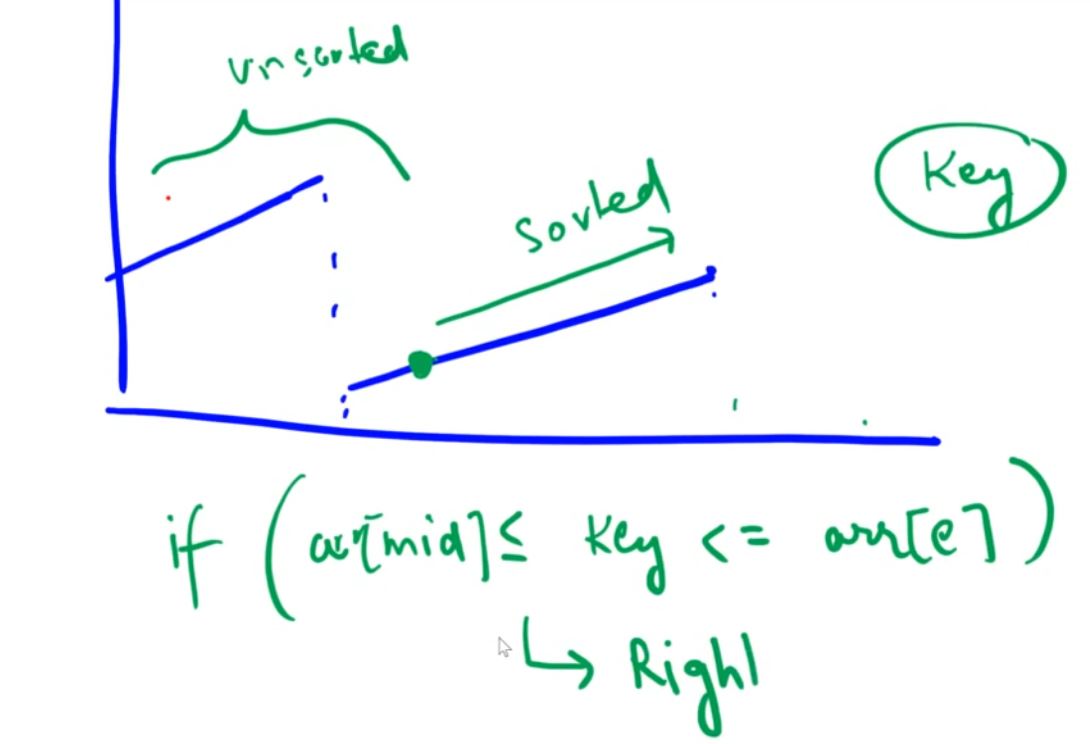 Unsorted
Sorted
Key
if (arr[mid] ≤ Key <= arr[e])
↳ Right